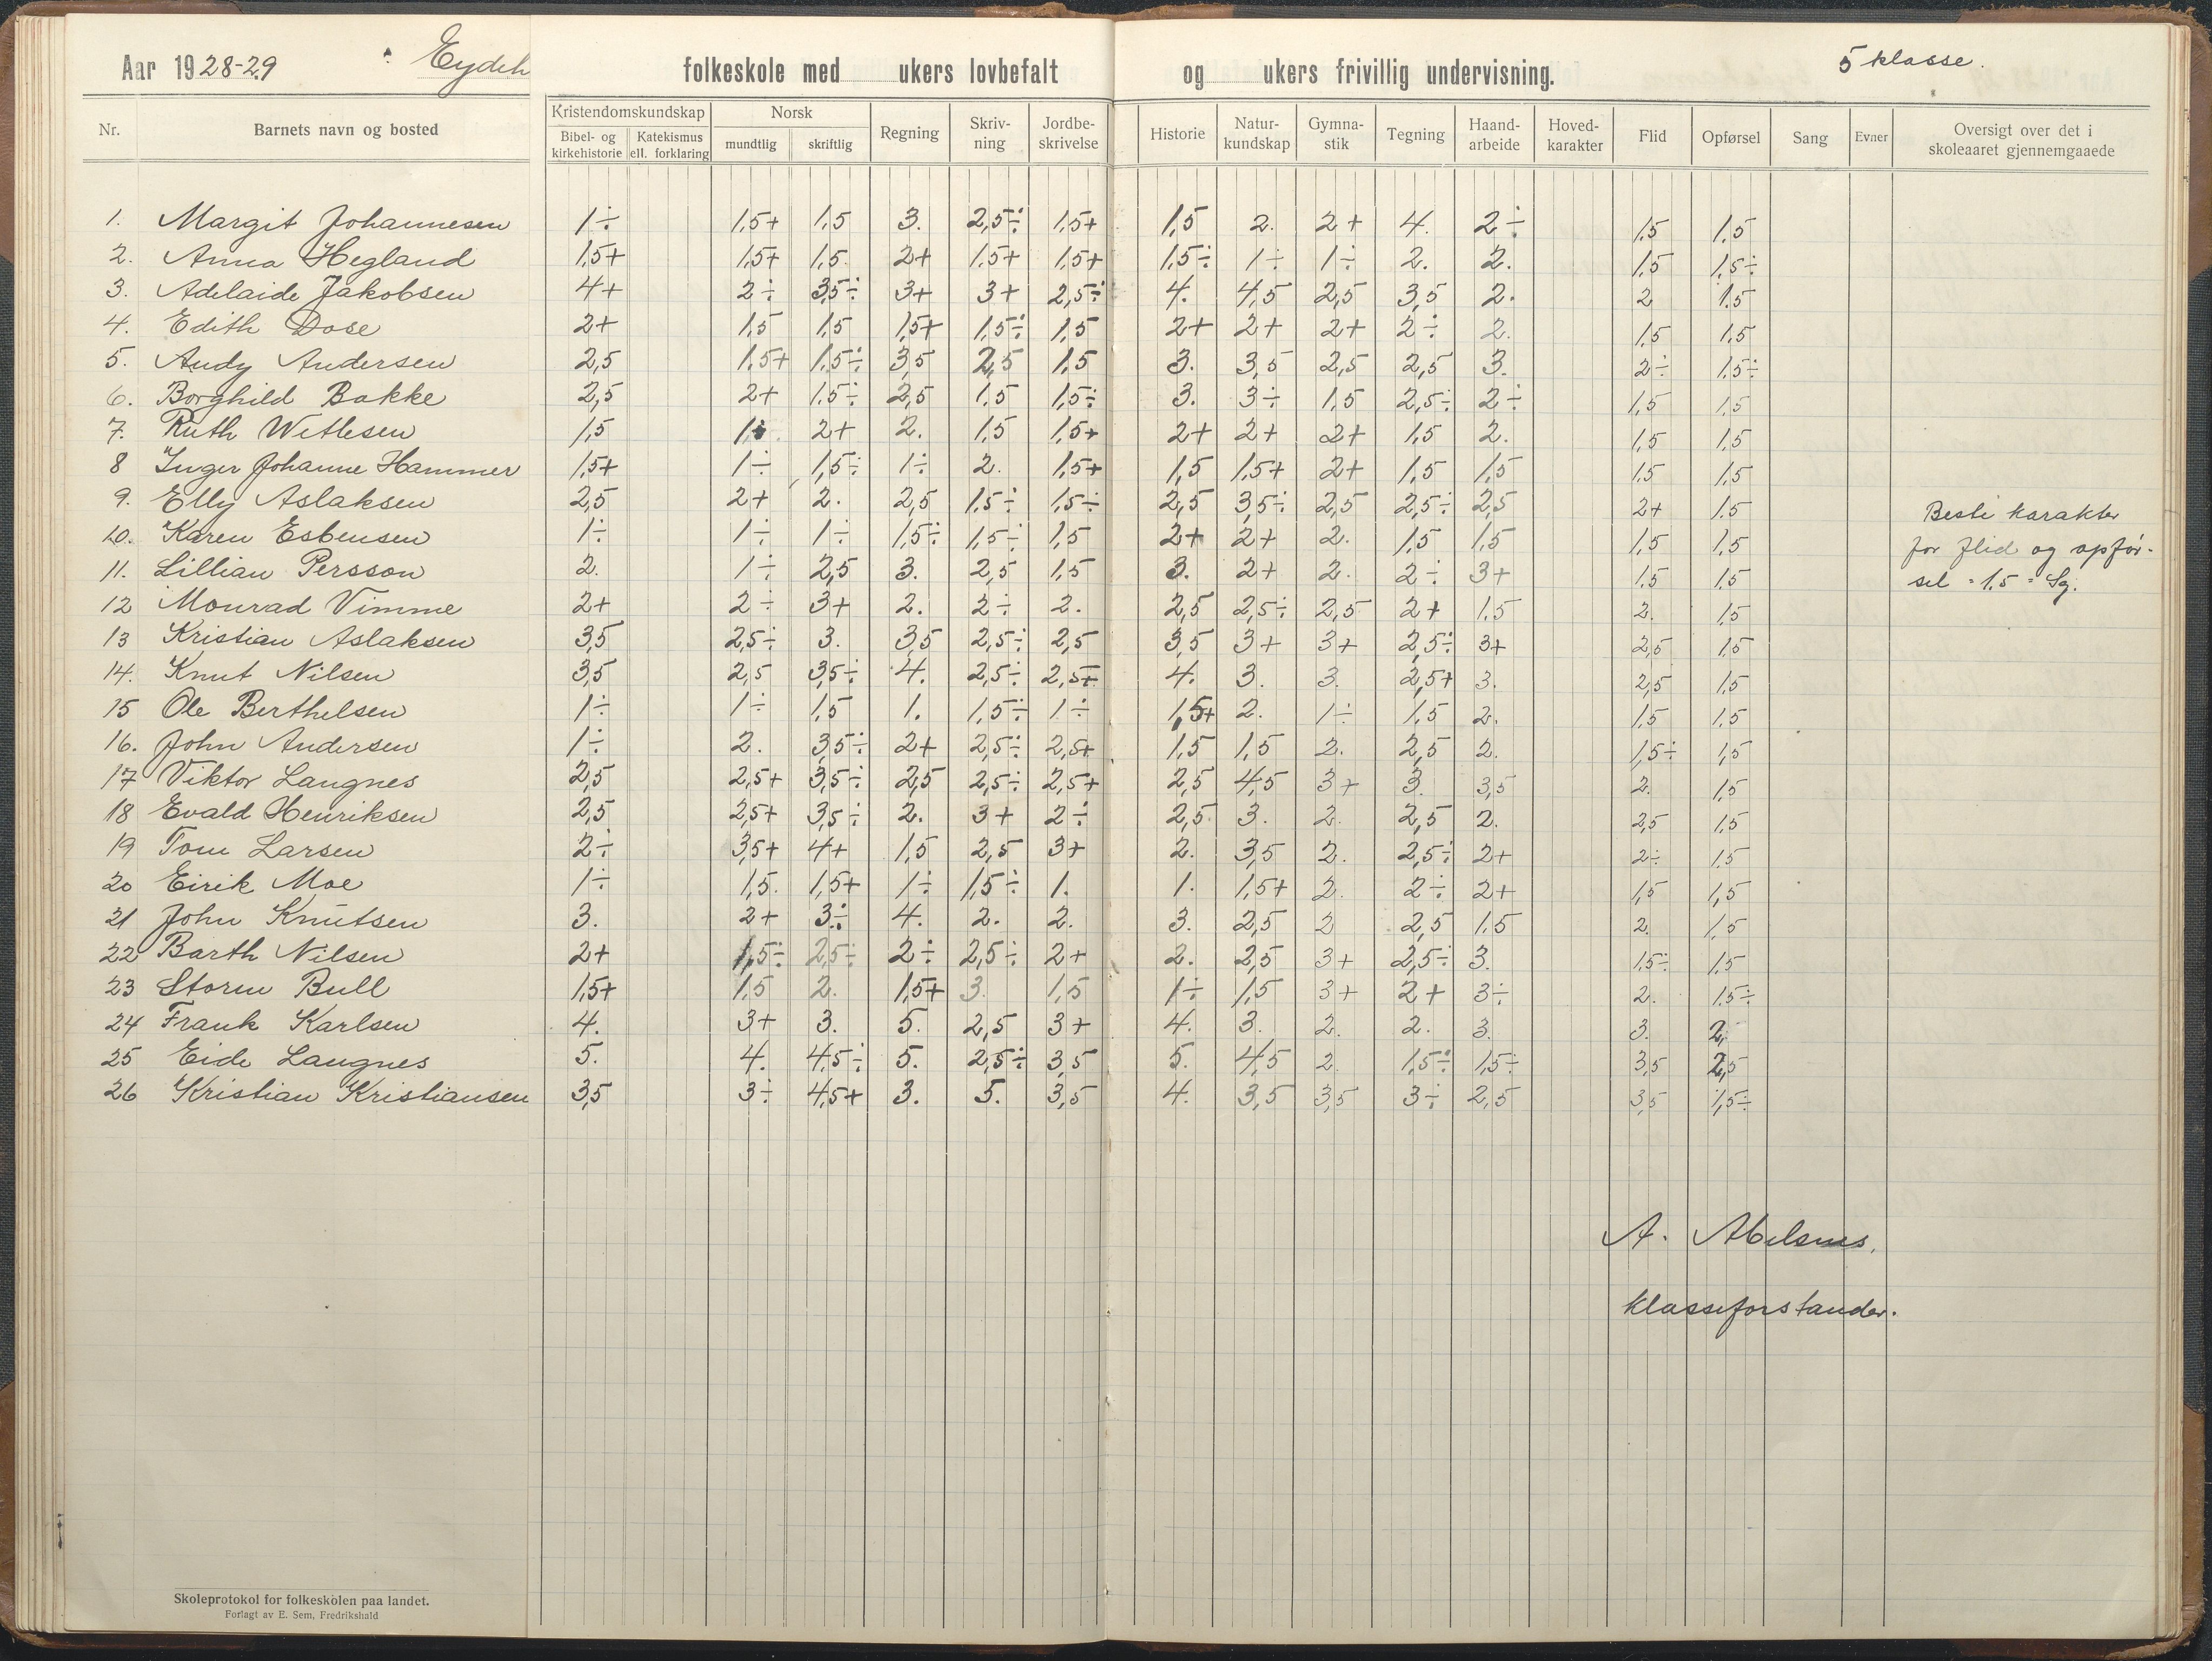 Aar 1928-29 Eydeh folkeskole med ukers lovbefalt og ukers frivillig undervisning. 5 klasse.
Nr. Barnets navn og bosted Kristendomskundskap Bibel- og kirkehistorie Katekismus ell. forklaring Norsk mundtlig skriftlig Regning Skriv-ning Jordbe-skrivelse Historie Natur-kundskap Gymna-stik Tegning Haand-arbeide Hoved-karakter Flid Opførsel Sang Evner Oversigt over det i skoleaaret gjennemgaaede
1. Margit Johannesen 1÷ 1,5+ 1,5 3. 2,5÷ 1,5+ 1,5 2. 2+ 4. 2÷ 1,5 1,5
2. Anna Hegland 1,5+ 1,5+ 1,5 2+ 1,5+ 1,5+ 1,5÷ 1÷ 1÷ 2. 2. 1,5 1,5÷
3. Adelaide Jakobsen 4+ 2÷ 3,5÷ 3+ 3+ 2,5÷ 4. 4,5 2,5 3,5 2. 2 1,5
4. Edith Dose 2+ 1,5 1,5 1,5+ 1,5÷ 1,5 2+ 2+ 2+ 2÷ 2. 1,5 1,5
5. Andy Andersen 2,5 1,5+ 1,5÷ 3,5 2,5 1,5 3. 3,5 2,5 2,5 3. 2÷ 1,5÷
6. Borghild Bakke 2,5 2+ 1,5÷ 2,5 1,5 1,5÷ 3. 3÷ 1,5 2,5÷ 2÷ 1,5 1,5
7. Ruth Witlesen 1,5 1÷ 2+ 2. 1,5 1,5+ 2+ 2+ 2+ 1,5 2. 1,5 1,5
8 Inger Johanne Hammer 1,5+ 1÷ 1,5÷ 1÷ 2. 1,5+ 1,5 1,5+ 2+ 1,5 1,5 1,5 1,5
9. Elly Aslaksen 2,5 2+ 2. 2,5 1,5÷ 1,5÷ 2,5 3,5÷ 2,5 2,5÷ 2,5 2+ 1,5
10. Karen Esbensen 1÷ 1÷ 1÷ 1,5÷ 1,5÷ 1,5 2+ 2+ 2. 1,5 1,5 1,5 1,5
11. Lillian Persson 2. 1÷ 2,5 3. 2,5 1,5 3. 2+ 2. 2÷ 3+ 1,5 1,5
12 Monrad Vimme 2+ 2÷ 3+ 2. 2÷ 2. 2,5 2,5÷ 2,5 2+ 1,5 2. 1,5
13 Kristian Aslaksen 3,5 2,5÷ 3. 3,5 2,5÷ 2,5 3,5 3+ 3+ 2,5÷ 3+ 2,5 1,5
14. Knut Nilsen 3,5 2,5 3,5÷ 4. 2,5÷ 2,5+ 4. 3. 3. 2,5+ 3. 2,5 1,5
15 Ole Berthelsen 1÷ 1÷ 1,5 1. 1,5÷ 1÷ 1,5+ 2. 1÷ 1,5 2. 1,5 1,5
16. John Andersen 1÷ 2. 3,5÷ 2+ 2,5÷ 2,5+ 1,5 1,5 2. 2,5 2. 1,5÷ 1,5
17 Viktor Langnes 2,5 2,5+ 3,5÷ 2,5 2,5÷ 2,5+ 2,5 4,5 3+ 3. 3,5 2. 1,5
18 Evald Henriksen 2,5 2,5+ 3,5÷ 2. 3+ 2÷ 2,5 3. 2. 2,5 2. 2,5 1,5
19 Tom Larsen 2÷ 3,5+ 4+ 1,5 2,5 3+ 2. 3,5 2. 2,5÷ 2+ 2÷ 1,5
20 Eirik Moe 1÷ 1,5 1,5+ 1÷ 1,5÷ 1. 1. 1,5+ 2. 2÷ 2+ 1,5 1,5
21 John Knutsen 3. 2+ 3÷ 4. 2. 2. 3. 2,5 2 2,5 1,5 2. 1,5
22 Barth Nilsen 2+ 1,5÷ 2,5÷ 2÷ 2,5÷ 2+ 2. 2,5 3+ 2,5÷ 3. 1,5÷ 1,5
23 Storm Bull 1,5+ 1,5 2. 1,5+ 3. 1,5 1÷ 1,5 3+ 2+ 3÷ 2. 1,5÷
24 Frank Karlsen 4. 3+ 3. 5. 2,5 3+ 4. 3. 2. 2. 3. 3. 2.
25 Eide Langnes 5. 4. 4,5÷ 5. 2,5÷ 3,5 5. 4,5 2. 1,5÷ 1,5÷ 3,5 2,5
26 Kristian Kristiansen 3,5 3÷ 4,5+ 3. 5. 3,5 4. 3,5 3,5 3÷ 2,5 3,5 1,5÷
Beste karakter
for flid og opfør-
sel = 1,5 = Sg.
A. Abelsnes.
klasseforstander.
Skoleprotokol for folkeskolen paa landet.
Forlagt av E. Sem, Fredrikshald